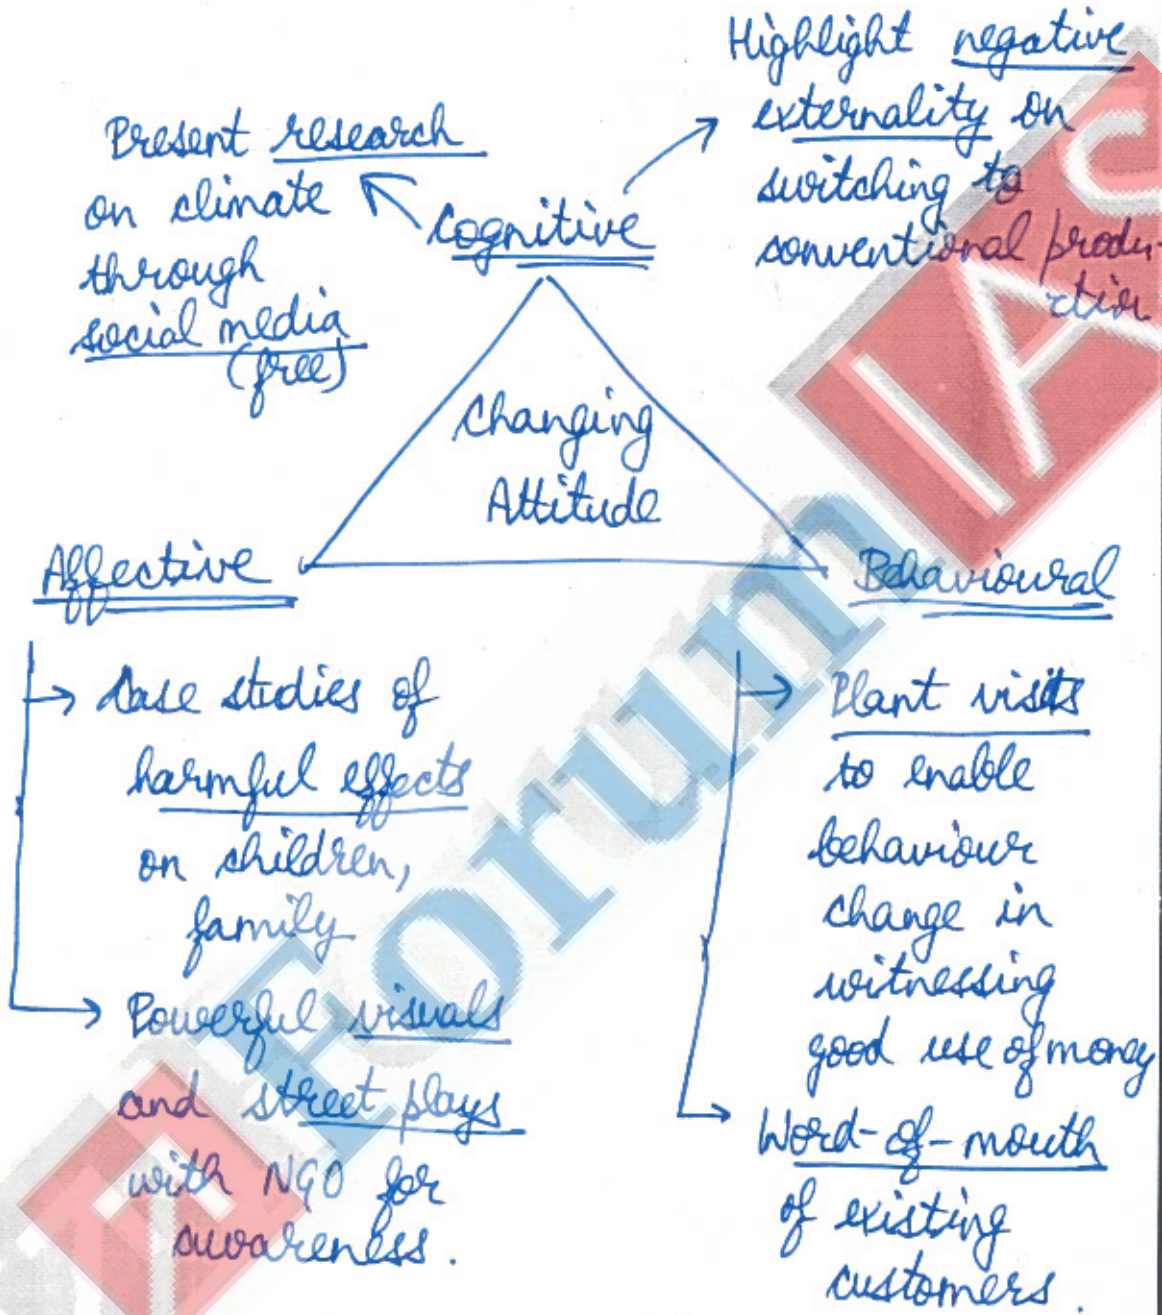 Present research
on climate
through
social media
(free)
Highlight negative
externality on
switching to
conventional produ-
ction
Cognitive
Changing
Attitude
Affective
Case studies of
harmful effects
on children,
family
Powerful visuals
and street plays
with NGO for
awareness.
Behavioural
Plant visits
to enable
behaviour
change in
witnessing
good use of money
Word-of-mouth
of existing
customers.
Forum IAS